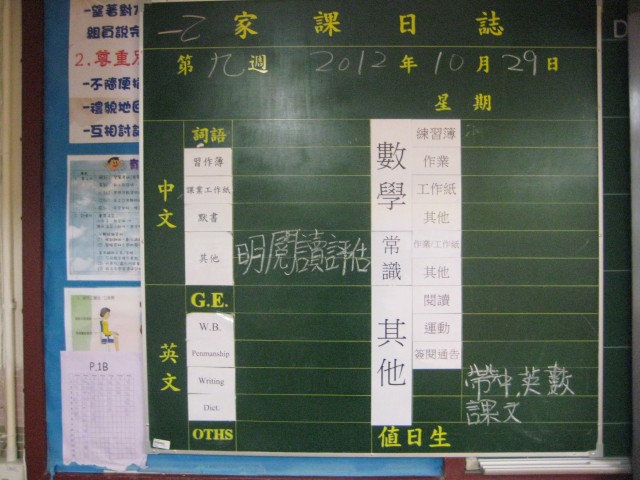 一望著對方
組員說完
2.尊重
一不隨便
一禮貌地
一互相討
P.1B
一乙 家課日誌
第九週 2012年10月29日
星期
中文
詞語
習作簿
課業工作紙
默書
其他 明閱讀評估
英文
G.E.
W.B.
Penmanship
Writing
Dict.
OTHS
數學
練習簿
作業
工作紙
其他
常識
作業/工作紙
其他
其他
閱讀
運動
簽閱通告
帶中,英,數
課文
值日生